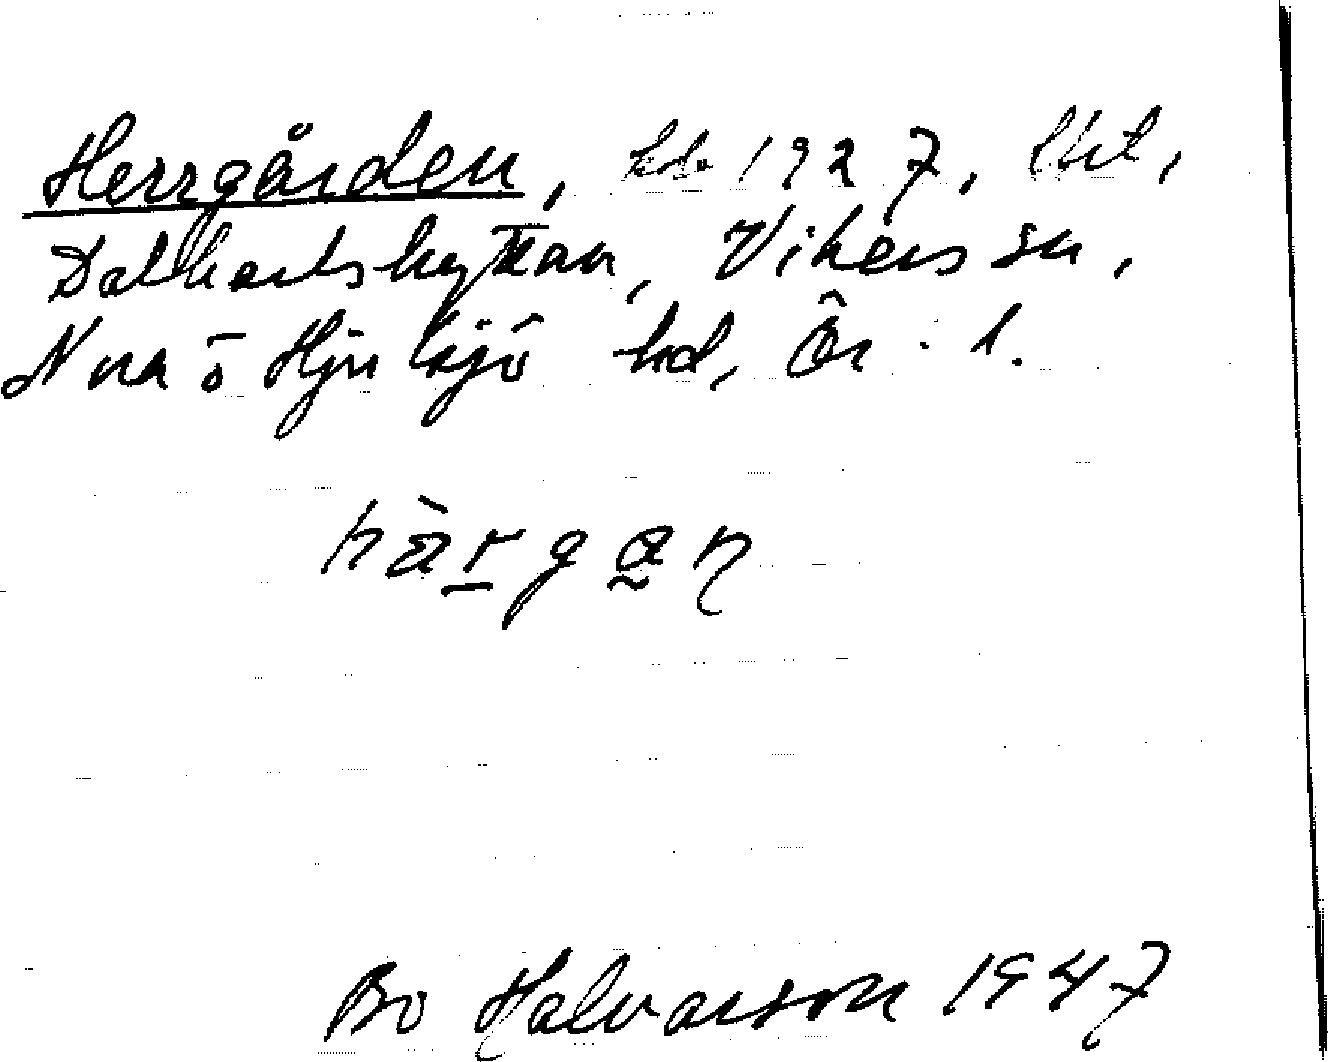 Herrgården, hd. 1927, Utt,
Dalkarlshyttan, Vikers sn,
Nora o Hjulsjö hd, Ör. l.
hàrgan
Bo Halvarson 1947